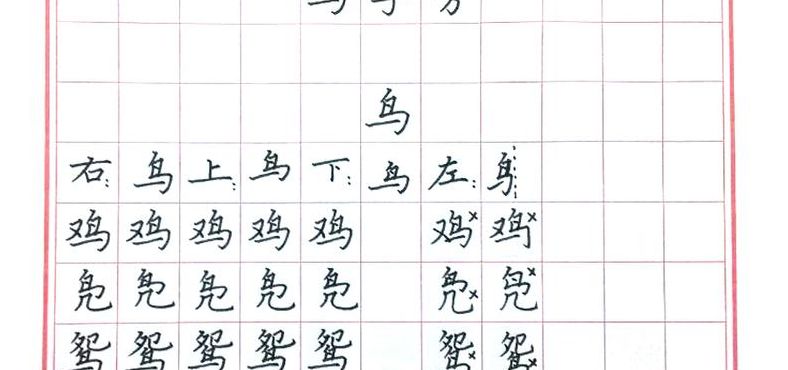 鸟
右: 鸟 上: 鸟 下: 鸟 左: 鸟
鸡 鸡 鸡 鸡 鸡 鸡× 鸡×
凫 凫 凫 凫 凫 凫× 凫×
鸳 鸳 鸳 鸳 鸳 鸳× 鸳×